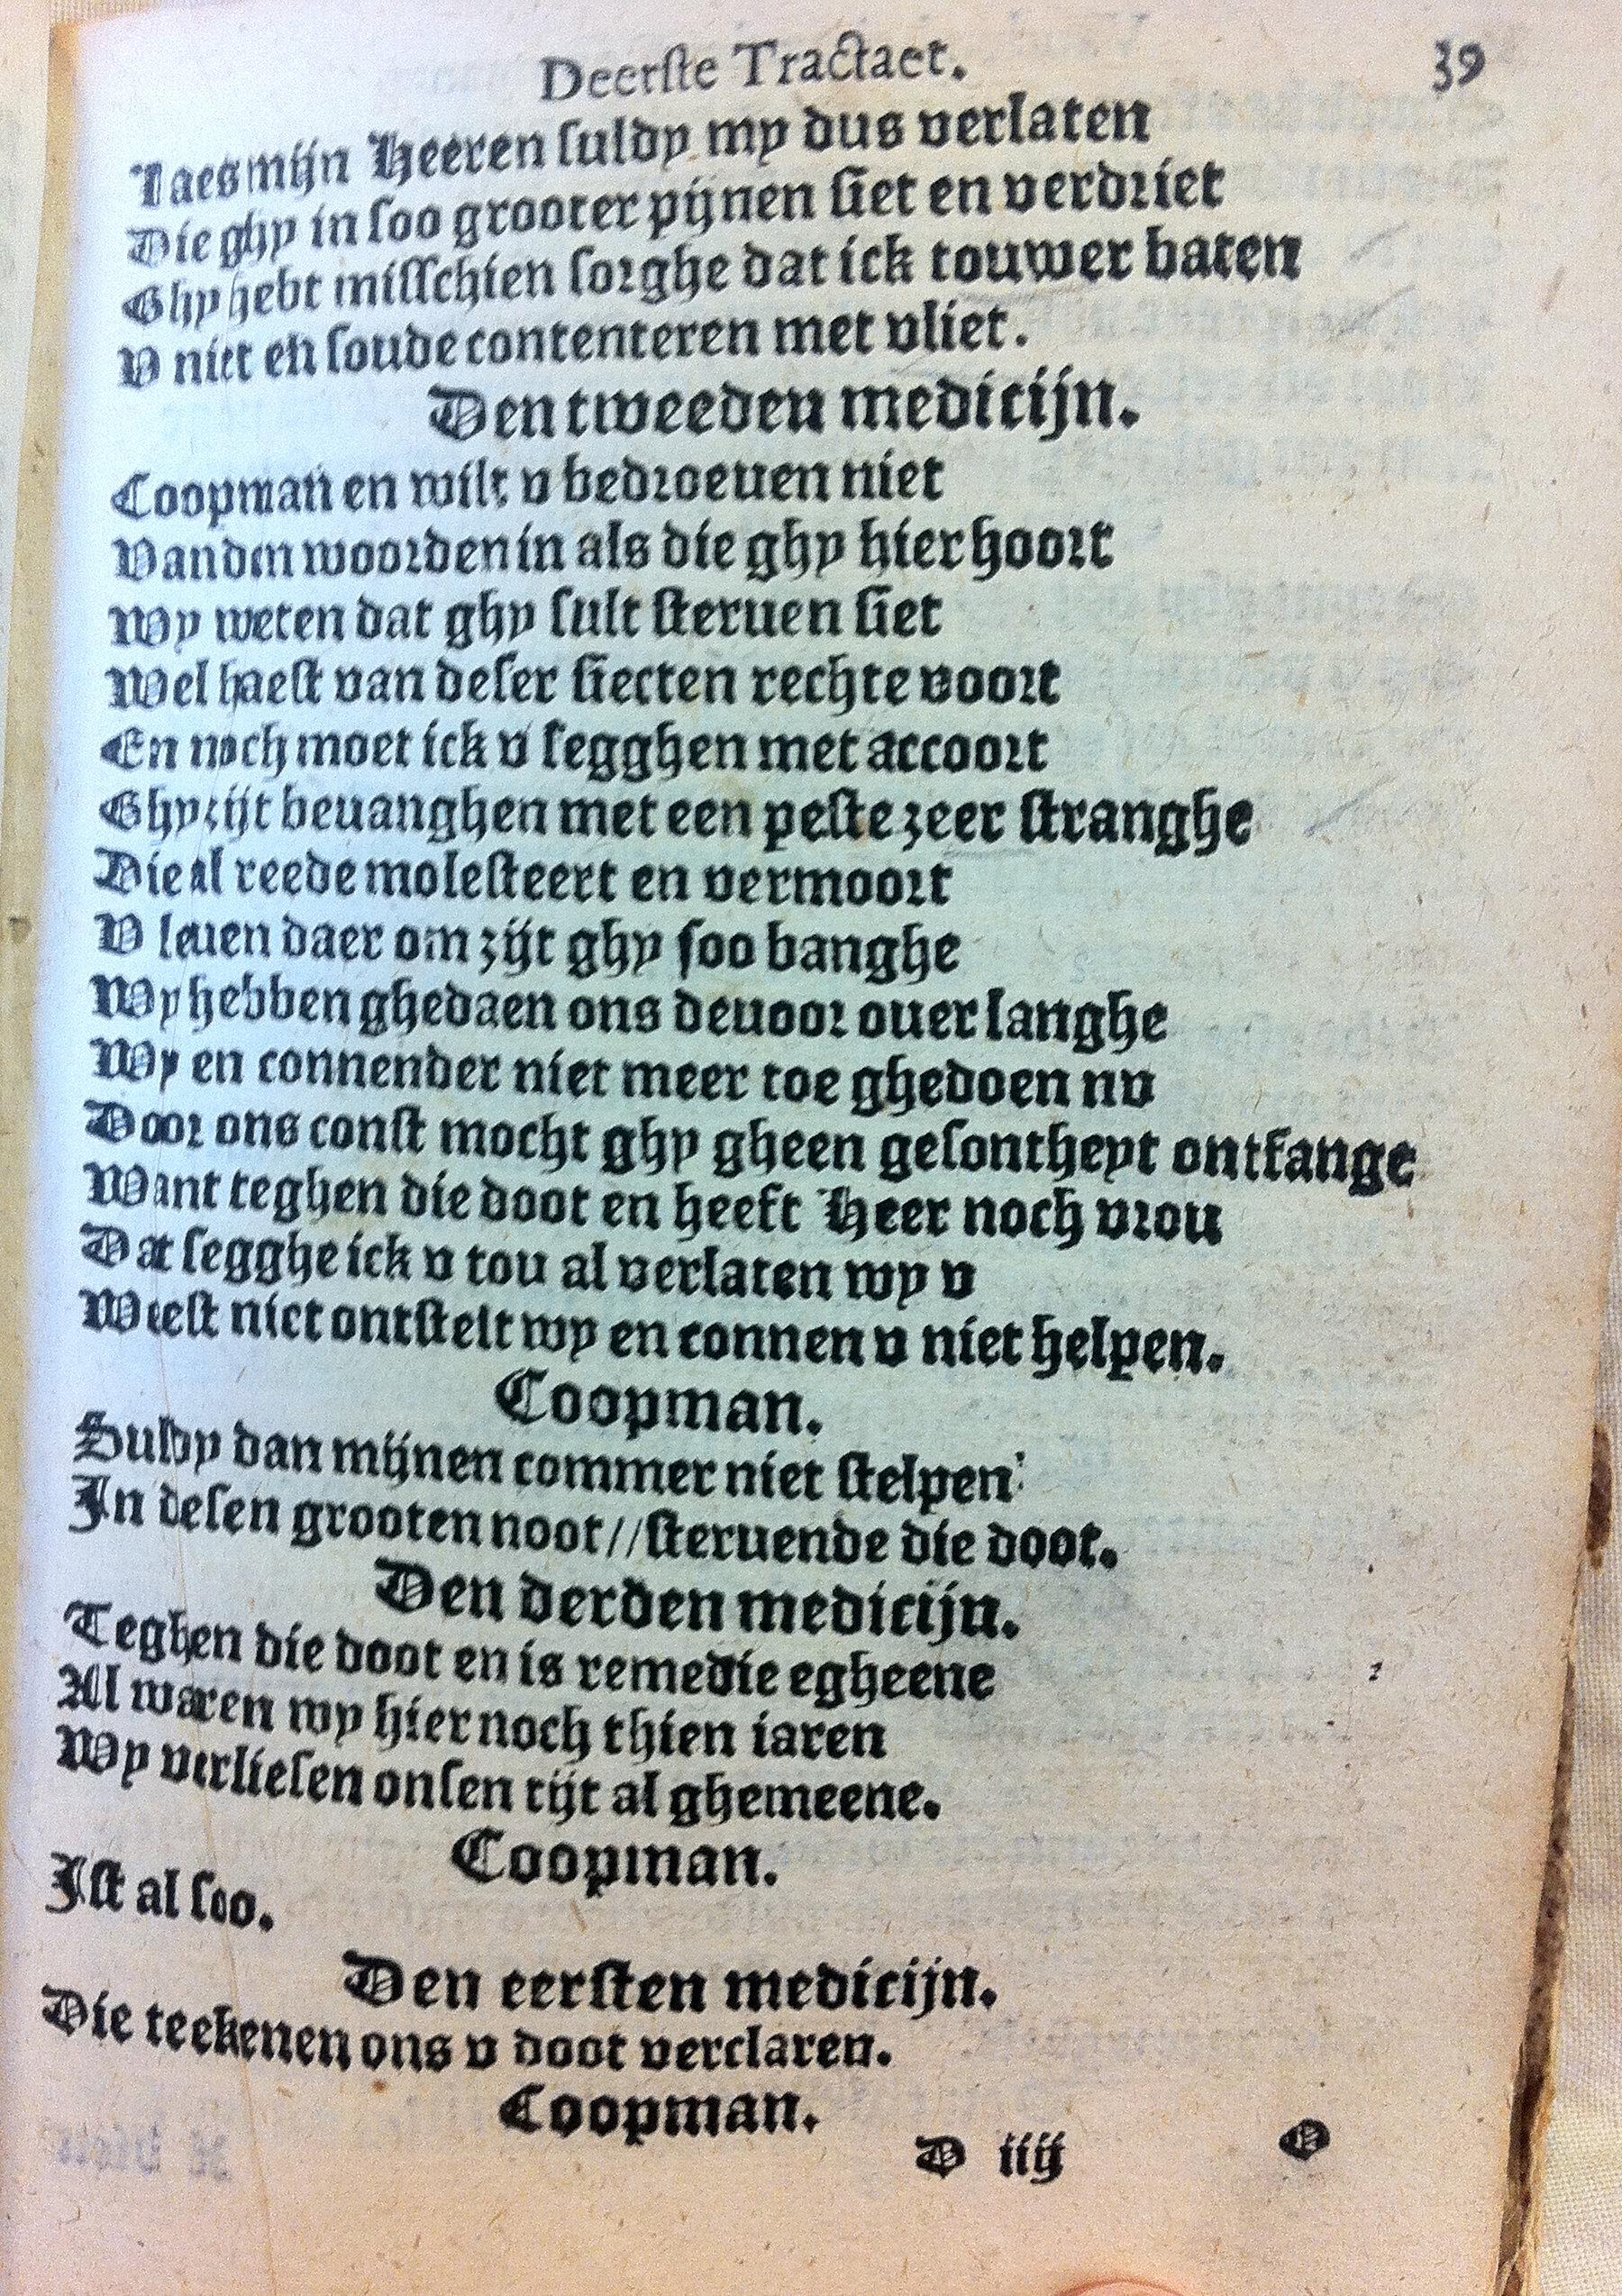 Deerste Tractaet. 39
Laes mijn Heeren suldy my dus verlaten
Die ghy in soo grooter pijnen siet en verdriet
Ghy hebt misschien sorghe dat ick touwer baten
V niet en soude contenteren met vliet.
Den tweeden medicijn.
Coopman en wilt v bedroeuen niet
Vanden woorden in als die ghy hier hoort
Wy weten dat ghy sult steruen siet
Wel haest van deser siecten rechte voort
En noch moet ick v segghen met accoort
Ghy zijt beuanghen met een peste zeer stranghe
Die al reede molesteert en vermoort
V leuen daer om zijt ghy soo banghe
Wy hebben ghedaen ons deuoor ouer langhe
Wy en connender niet meer toe ghedoen nv
Door ons const mocht ghy gheen gesontheyt ontfange
Want teghen die doot en heeft Heer noch vrou
Dat segghe ick v tou al verlaten wy v
Weest niet ontstelt wy en connen v niet helpen.
Coopman.
Suldy dan mijnen commer niet stelpen:
In desen grooten noot//steruende die doot.
Den derden medicijn.
Teghen die doot en is remedie egheene
Al waren wy hier noch thien iaren
Wy verliesen onsen tijt al ghemeene.
Coopman.
Ist al soo.
Den eersten medicijn.
Die teekenen ons v doot verclaren.
Coopman.
D iiij O